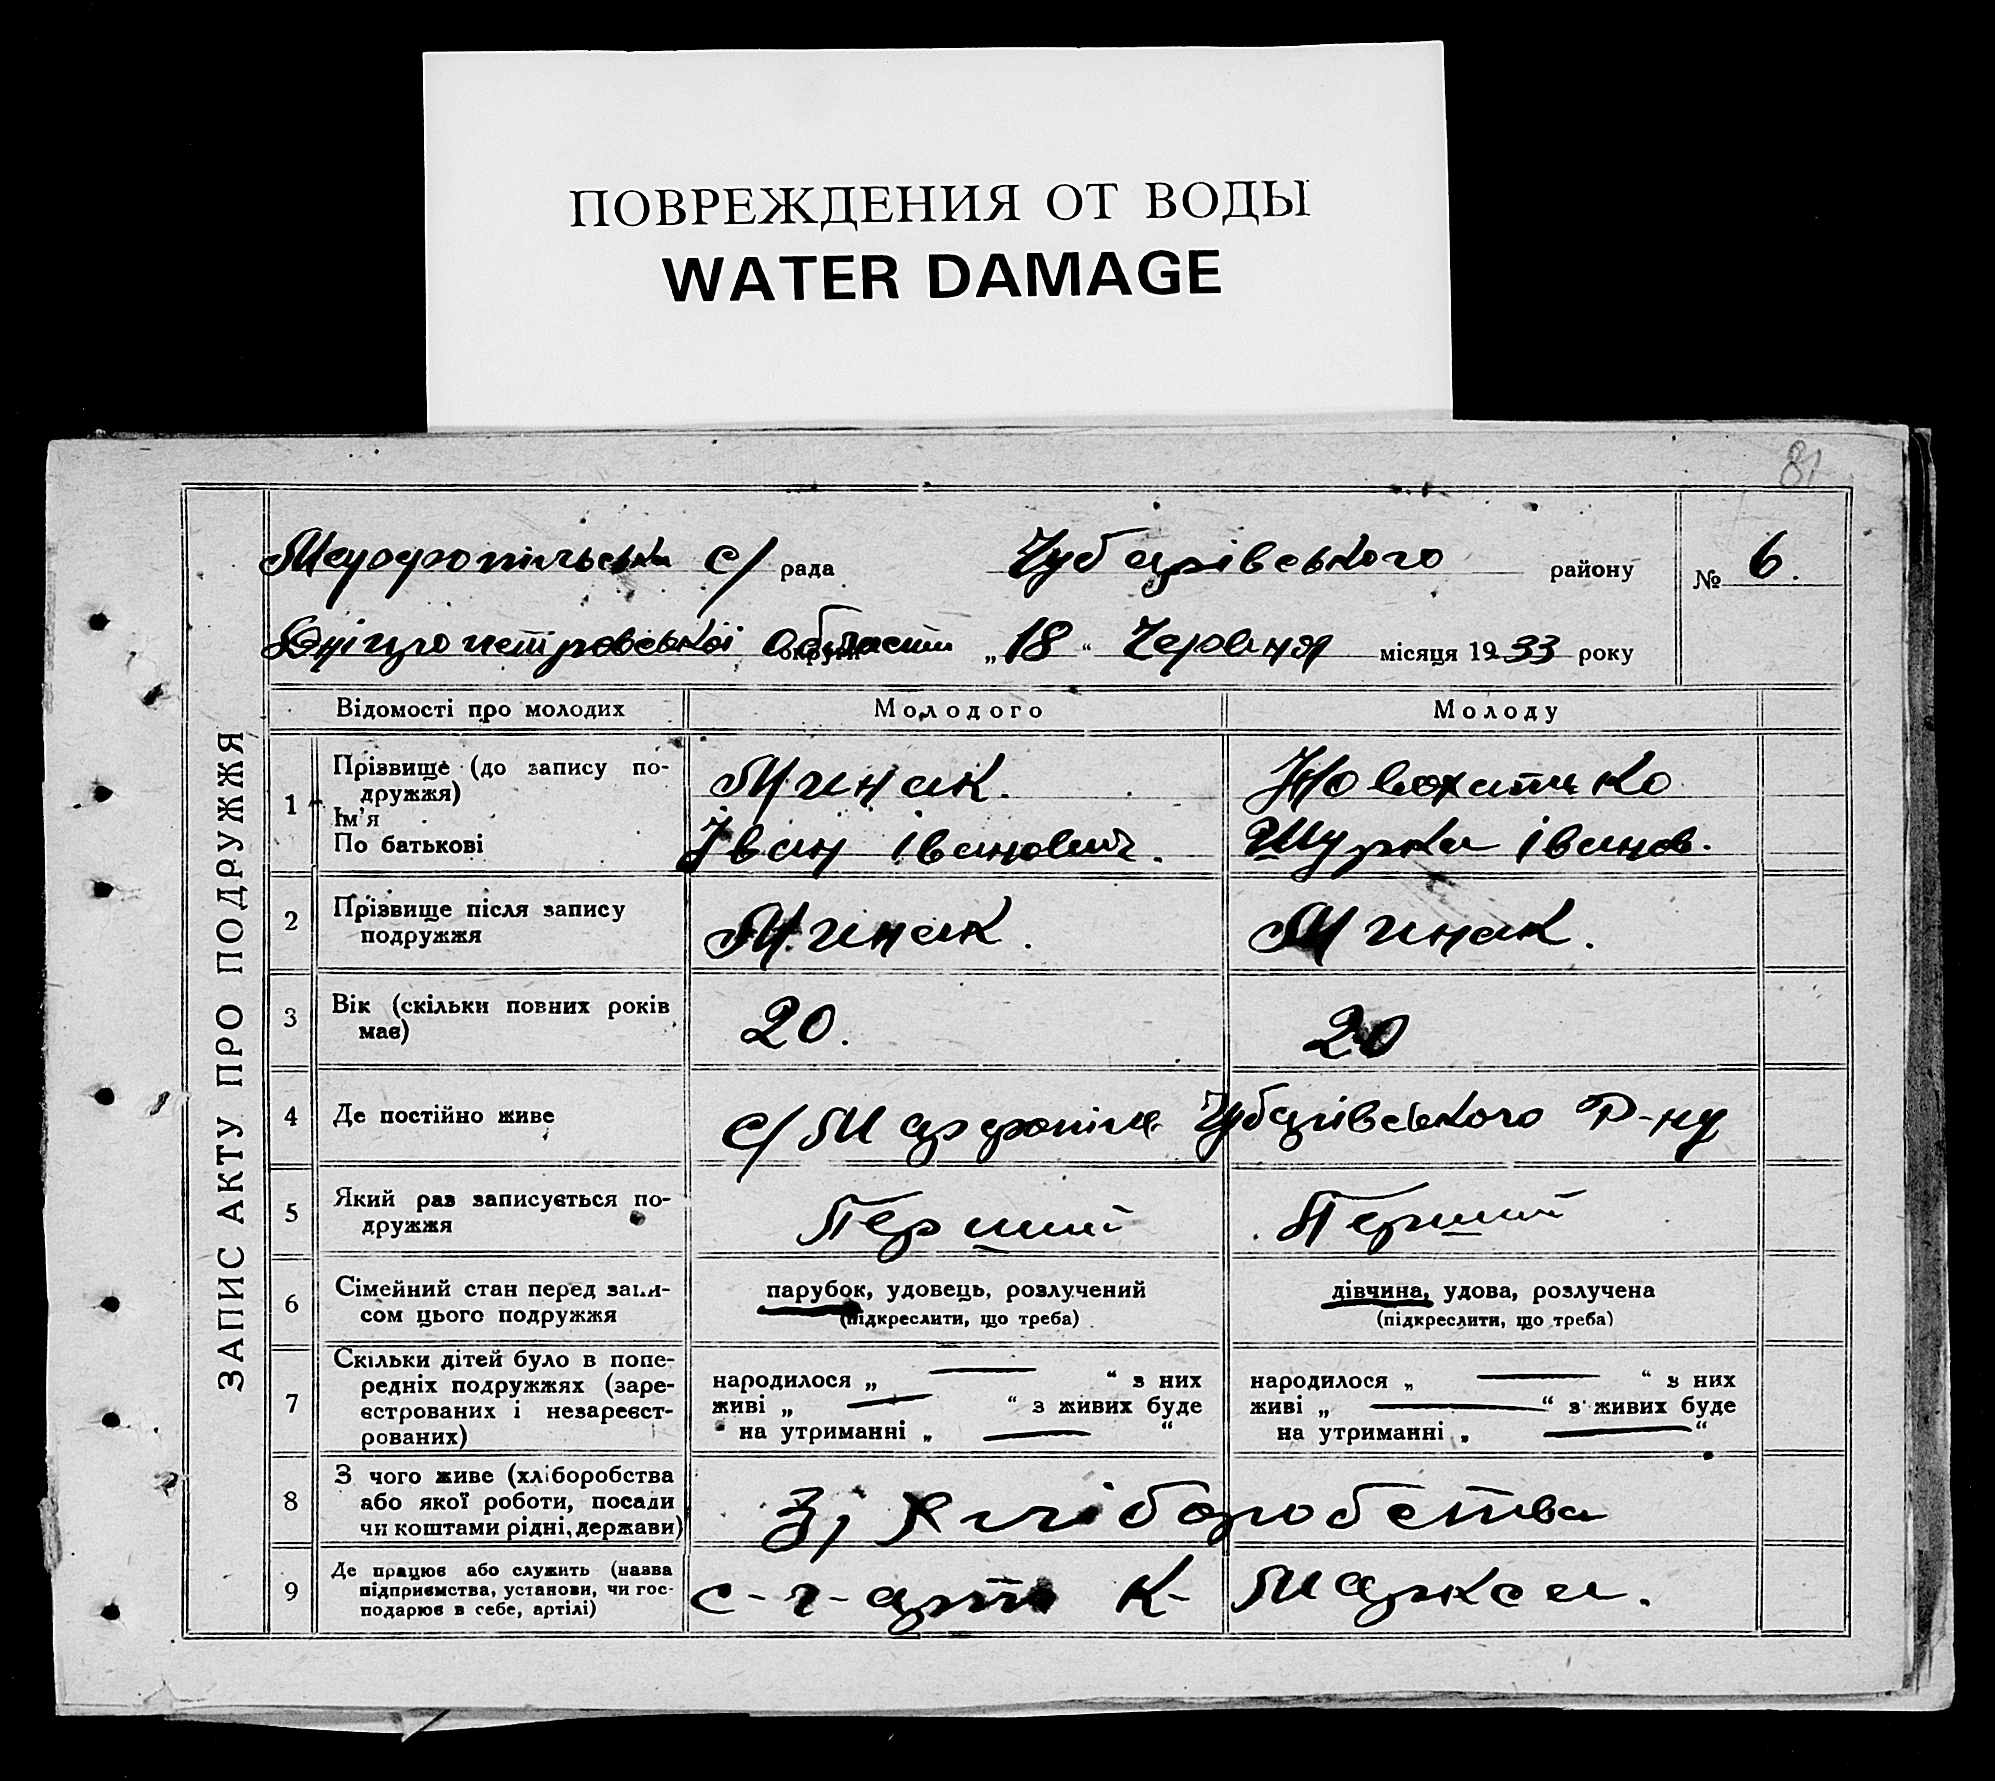 ПОВРЕЖДЕНИЯ ОТ ВОДЫ
WATER DAMAGE
81
ЗАПИС АКТУ ПРО ПОДРУЖЖЯ
с/ рада Чубарівського району № 6.
Дніпропетровської області „ 18 “ Червня місяця 1933 року
Відомості про молодих Молодого Молоду
1 Прізвище (до запису по- Минак. Новохатько
дружжя)
Ім'я
По батькові Іван Іванович. Шурка Іванов.
2 Прізвище після запису Минак. Минак.
подружжя
3 Вік (скільки повних років 20. 20
має)
4 Де постійно живе с/ Марфопіль Чубарівського Р-ну
5 Який раз записується по- Перший Перший
дружжя
6 Сімейний стан перед запи- парубок, удовець, розлучений дівчина, удова, розлучена
сом цього подружжя (підкреслити, що треба) (підкреслити, що треба)
7 Скільки дітей було в попе-
редніх подружжях (заре- народилося „ — “ з них народилося „ — “ з них
єстрованих і незареєст- живі „ — “ з живих буде живі „ — “ з живих буде
рованих) на утриманні „ — “ на утриманні „ — “
8 З чого живе (хліборобства
або якої роботи, посади З, Хліборобства
чи коштами рідні, держави)
9 Де працює або служить (назва
підприємства, установи, чи гос- с-г-арт К- Маркса.
подарює в себе, артілі)